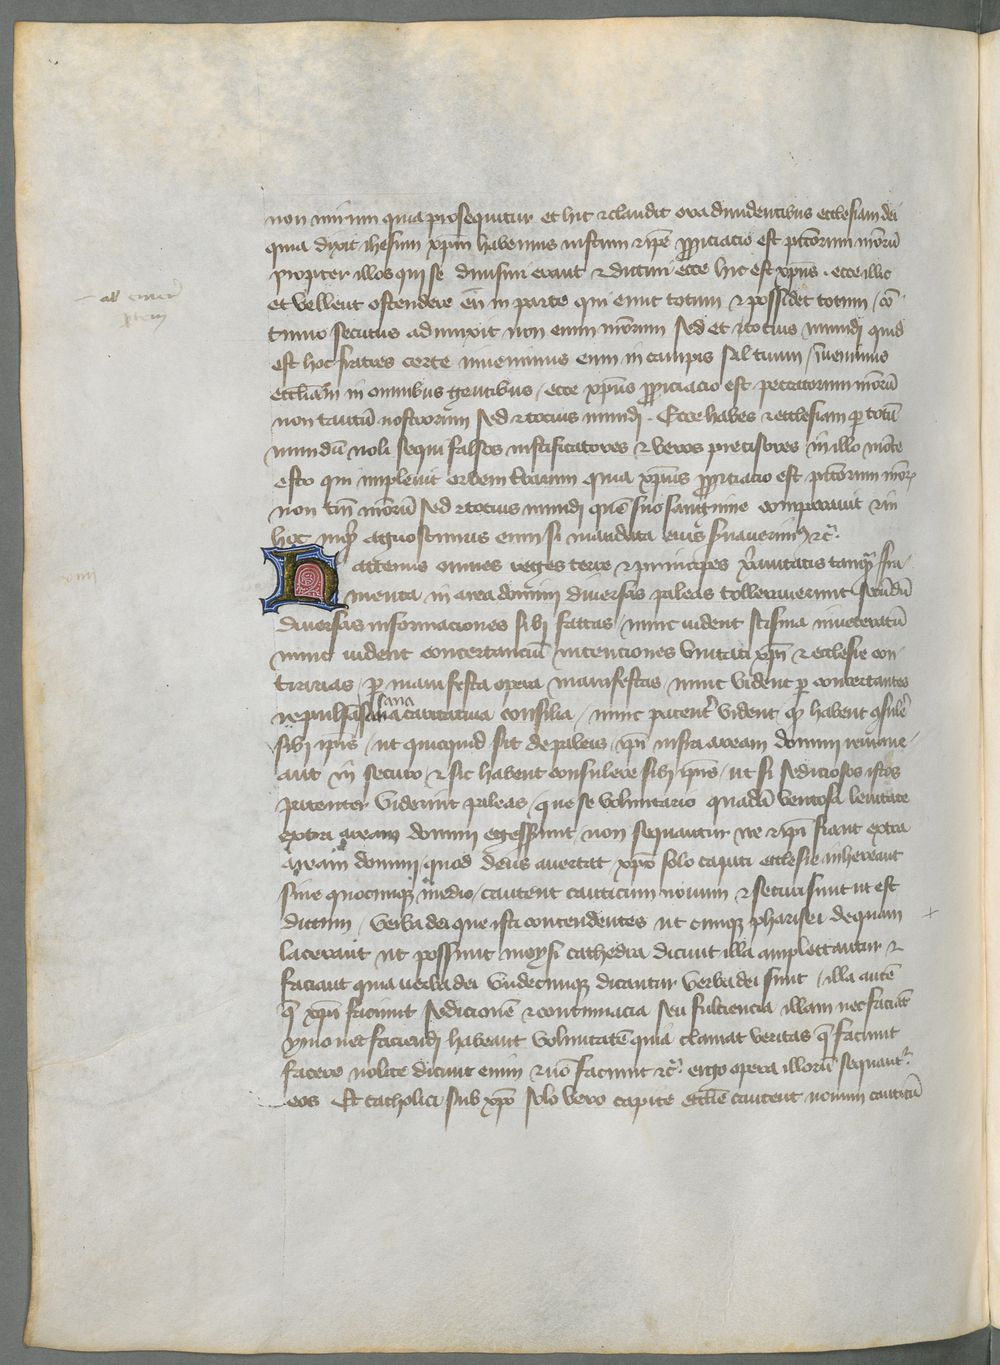 non mirum quia prosequitur et hic & claudit ora diuidentibus ecclesiam dei
quia dixit ihesum xpm habemus iustum & ipse ppiciacio est pctorum nrorū
propter illos qui se diuisuri erant & dicturi ecce hic est xpus . ecce illic
et vellent ostendere eū in parte qui emit totum & possidet totum / cō
tinuo secutus adiunxit non enim nrorum sed et & tocius mundi quid
est hoc fratres certe inuenimus eum in campis saltuum / inuenimus
eccliam in omnibus gentibus / ecce xpus ppiciacio est peccatorum nrorū
non tantū nostrorum sed & tocius mundi . Ecce habes & ecclesiam p totū
mundū noli sequi falsos iustificatores & veros precisores in illo mōte
esto qui impleuit orbem terrarum quia xpus ppiciacio est pctorum nror
non tm nrorū sed & tocius mundi quē suo sanguine comparauit & in
hoc inqt agnoscimus eum si mandata eius seruauerimus &c
Hactenus omnes reges terre & principes xanitatis tanq fru
menta in area domini diuersas paleas tollerauerunt secūdū
diuersas informaciones sibi factas / nunc vident scisma inueteratū
nunc vident concertanciū intenciones vnitati xpi & ecclesie con
trarias / p manifesta opera manifestas / nunc vident p concertantes
repulsa sana caritatiua consilia / nunc patent vident q habent gsulē
sibi ipis / ut quicquid sit de paleis / ipi infra aream domini remane
ant in securo & sic habent consulere sibi ipis / ut si sediciosos istos
patenter viderint paleas / que se voluntario quadā ventosa leuitate
extra aream domini egesserunt non sequantur ne & ipi fiant extra
aream domini quod deus auertat xpo solo capiti ecclesie inhereant
sine quocunq medio / cantent canticum nouum & securi sint ut est
dictum / verba dei que isti contendentes ut cunq pharisei de quam
lacerant ut possunt moysi cathedra dicunt illa amplectantur &
faciant quia uerba dei vndecunq dicantur verba dei sunt / illa autē
q xpi faciunt sedicionē & contumacia seu fulciencia illam nec faciāt
ymo nec faciendi habeant voluntatē quia clamat veritas q faciunt
facere nolite dicunt enim & nō faciunt &c ergo opera illorū sequantr
eos Et catholici sub xpo solo vero capite ecclie cantent nouum canticū